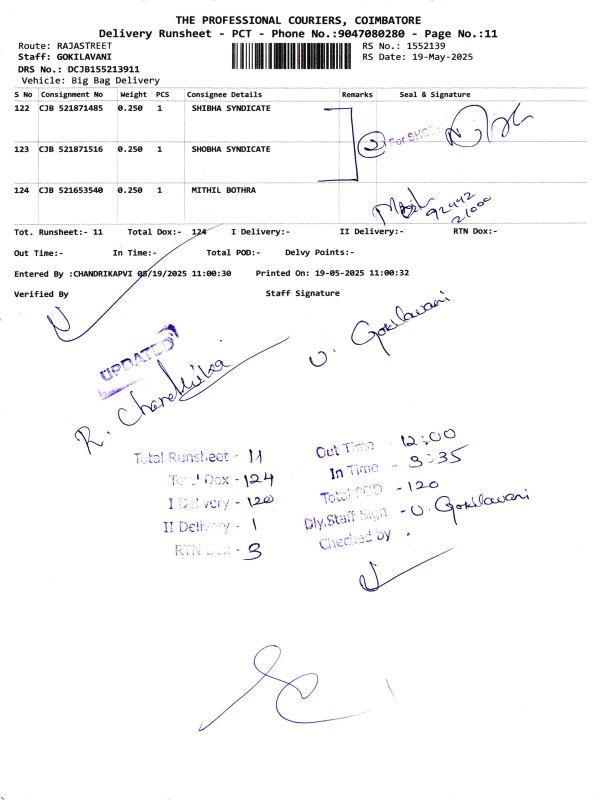 THE PROFESSIONAL COURIERS, COIMBATORE
Delivery Runsheet - PCT - Phone No.:9047080280 - Page No.:11
Route: RAJASTREET
RS No.: 1552139
Staff: GOKILAVANI
RS Date: 19-May-2025
DRS No.: DCJB155213911
Vehicle: Big Bag Delivery
S No Consignment No Weight PCS Consignee Details Remarks Seal & Signature
122 CJB 521871485 0.250 1 SHIBHA SYNDICATE
123 CJB 521871516 0.250 1 SHOBHA SYNDICATE
2 For SHO
124 CJB 521653540 0.250 1 MITHIL BOTHRA
92442
21000
Tot. Runsheet:- 11 Total Dox:- 124 I Delivery:- II Delivery:- RTN Dox:-
Out Time:- In Time:- Total POD:- Delvy Points:-
Entered By :CHANDRIKAPVI 05/19/2025 11:00:30 Printed On: 19-05-2025 11:00:32
Verified By Staff Signature
UPDATED
R. Chandrika
V. Gokilavani
Total Runsheet - 11
Out Time - 12:00
Total Dox - 124
In Time - 3:35
I Delivery - 120
Total POD - 120
II Delivery - 1
Dly.Staff Sign - V. Gokilavani
RTN Dox - 3
Checked by -